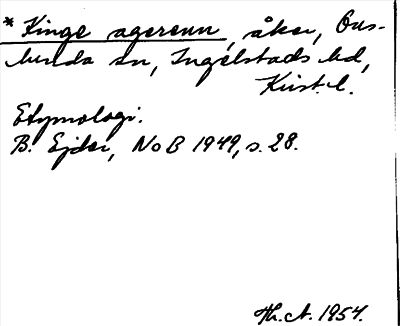 * Kinge agerenn, åker, Ous-
lunda sn, Ingelstads hd,
Krist. l.
Etymologi.
B. Ejder, NoB 1949, s. 28.
Th. A. 1954.